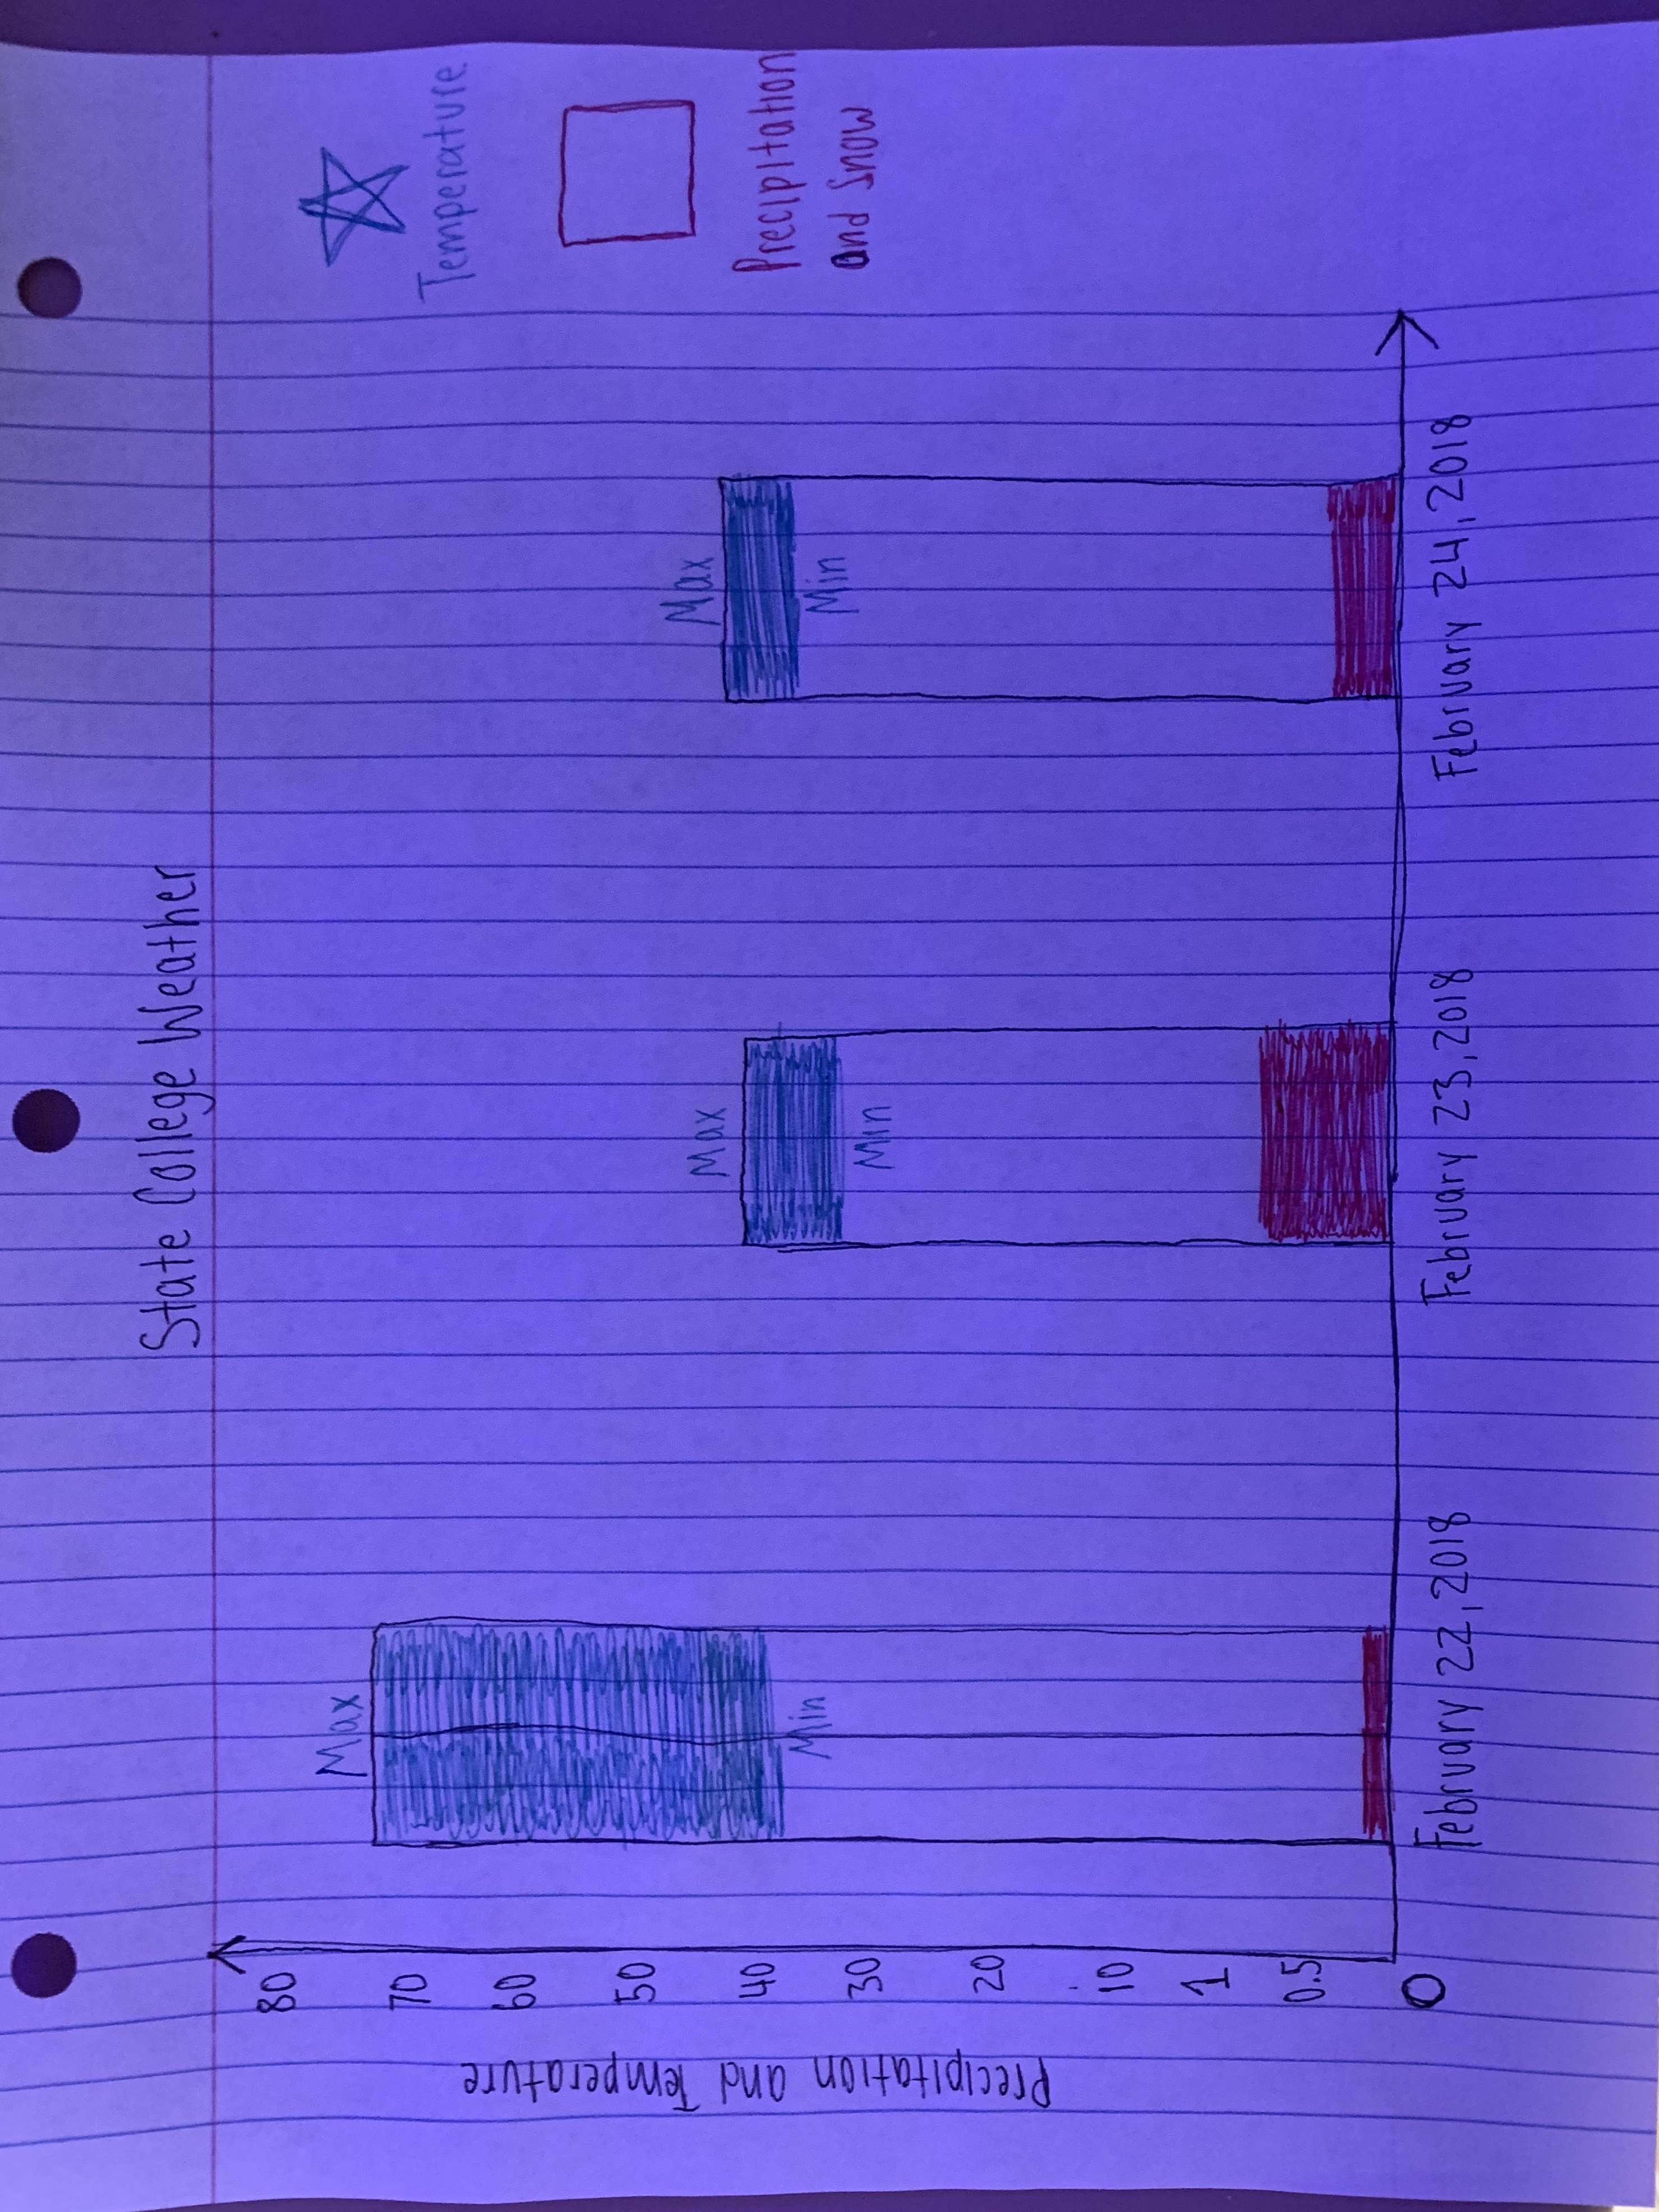 State College Weather
Temperature
Precipitation
and Snow
Precipitation and Temperature
80
70
60
50
40
30
20
10
1
0.5
0
Max
Min
Max
Min
Max
Min
February 22, 2018
February 23, 2018
February 24, 2018